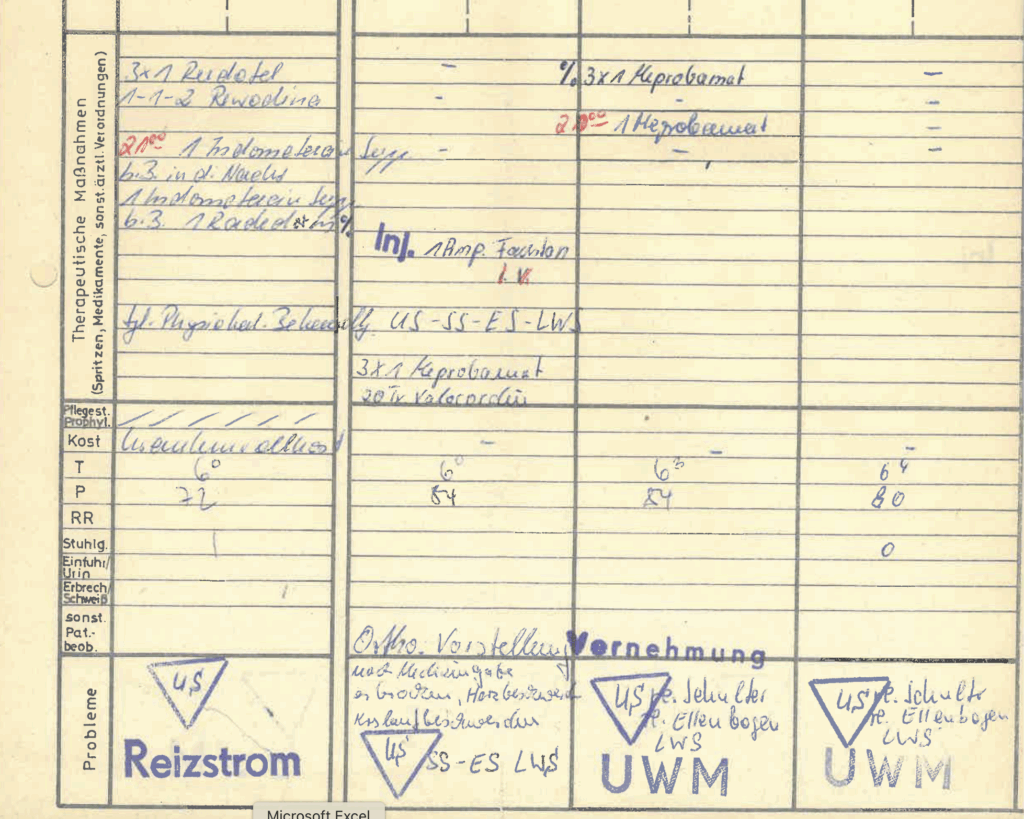 Therapeutische Maßnahmen
(Spritzen, Medikamente, sonst. ärztl. Verordnungen)
3x1
1-1-2
21⁰⁰ 1 Supp.
b.B. in d. Nacht
1 Supp.
b.B. 1
tgl. Physiother. US-SS-ES-LWS
–
–
–
Inj. 1 Amp.
i.V.
3x1 Meprobamat
20 Tr
% 3x1 Meprobamat
–
21⁰⁰ 1 Meprobamat
–
–
–
–
–
Pflegest.
Prophyl.
Kost – – –
T 6⁰ 6⁰ 6³ 6⁴
P 72 84 84 80
RR
Stuhlg. | 0
Einfuhr/
Urin
Erbrech/
Schweiß
sonst.
Pat.-
beob.
Ortho. Vorstellung
Vernehmung
Probleme
US
Reizstrom
nach
erbrochen, Herzbeschwerden
Kreislaufbeschwerden
US SS-ES LWS
US re. Schulter
re. Ellenbogen
LWS
UWM
US re. Schulter
re. Ellenbogen
LWS
UWM
Microsoft Excel